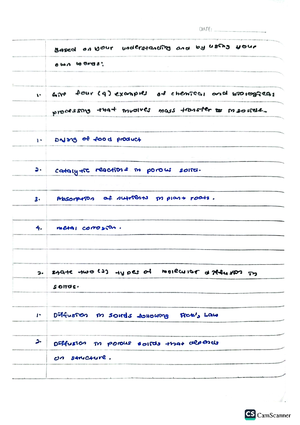 DATE:
Based on your understanding and by using your
own words:
1. Give four (4) examples of chemical and biological
processing that involves mass transfer in solids.
1. Drying of food product
2. Catalytic reactions in porous solid.
3. Absorption of nutrients in plant roots.
4. Metal corrosion.
2. State two (2) types of molecular diffusion in
solids.
1. Diffusion in solids following Fick's Law
2. Diffusion in porous solids that depends
on structure.
CS CamScanner